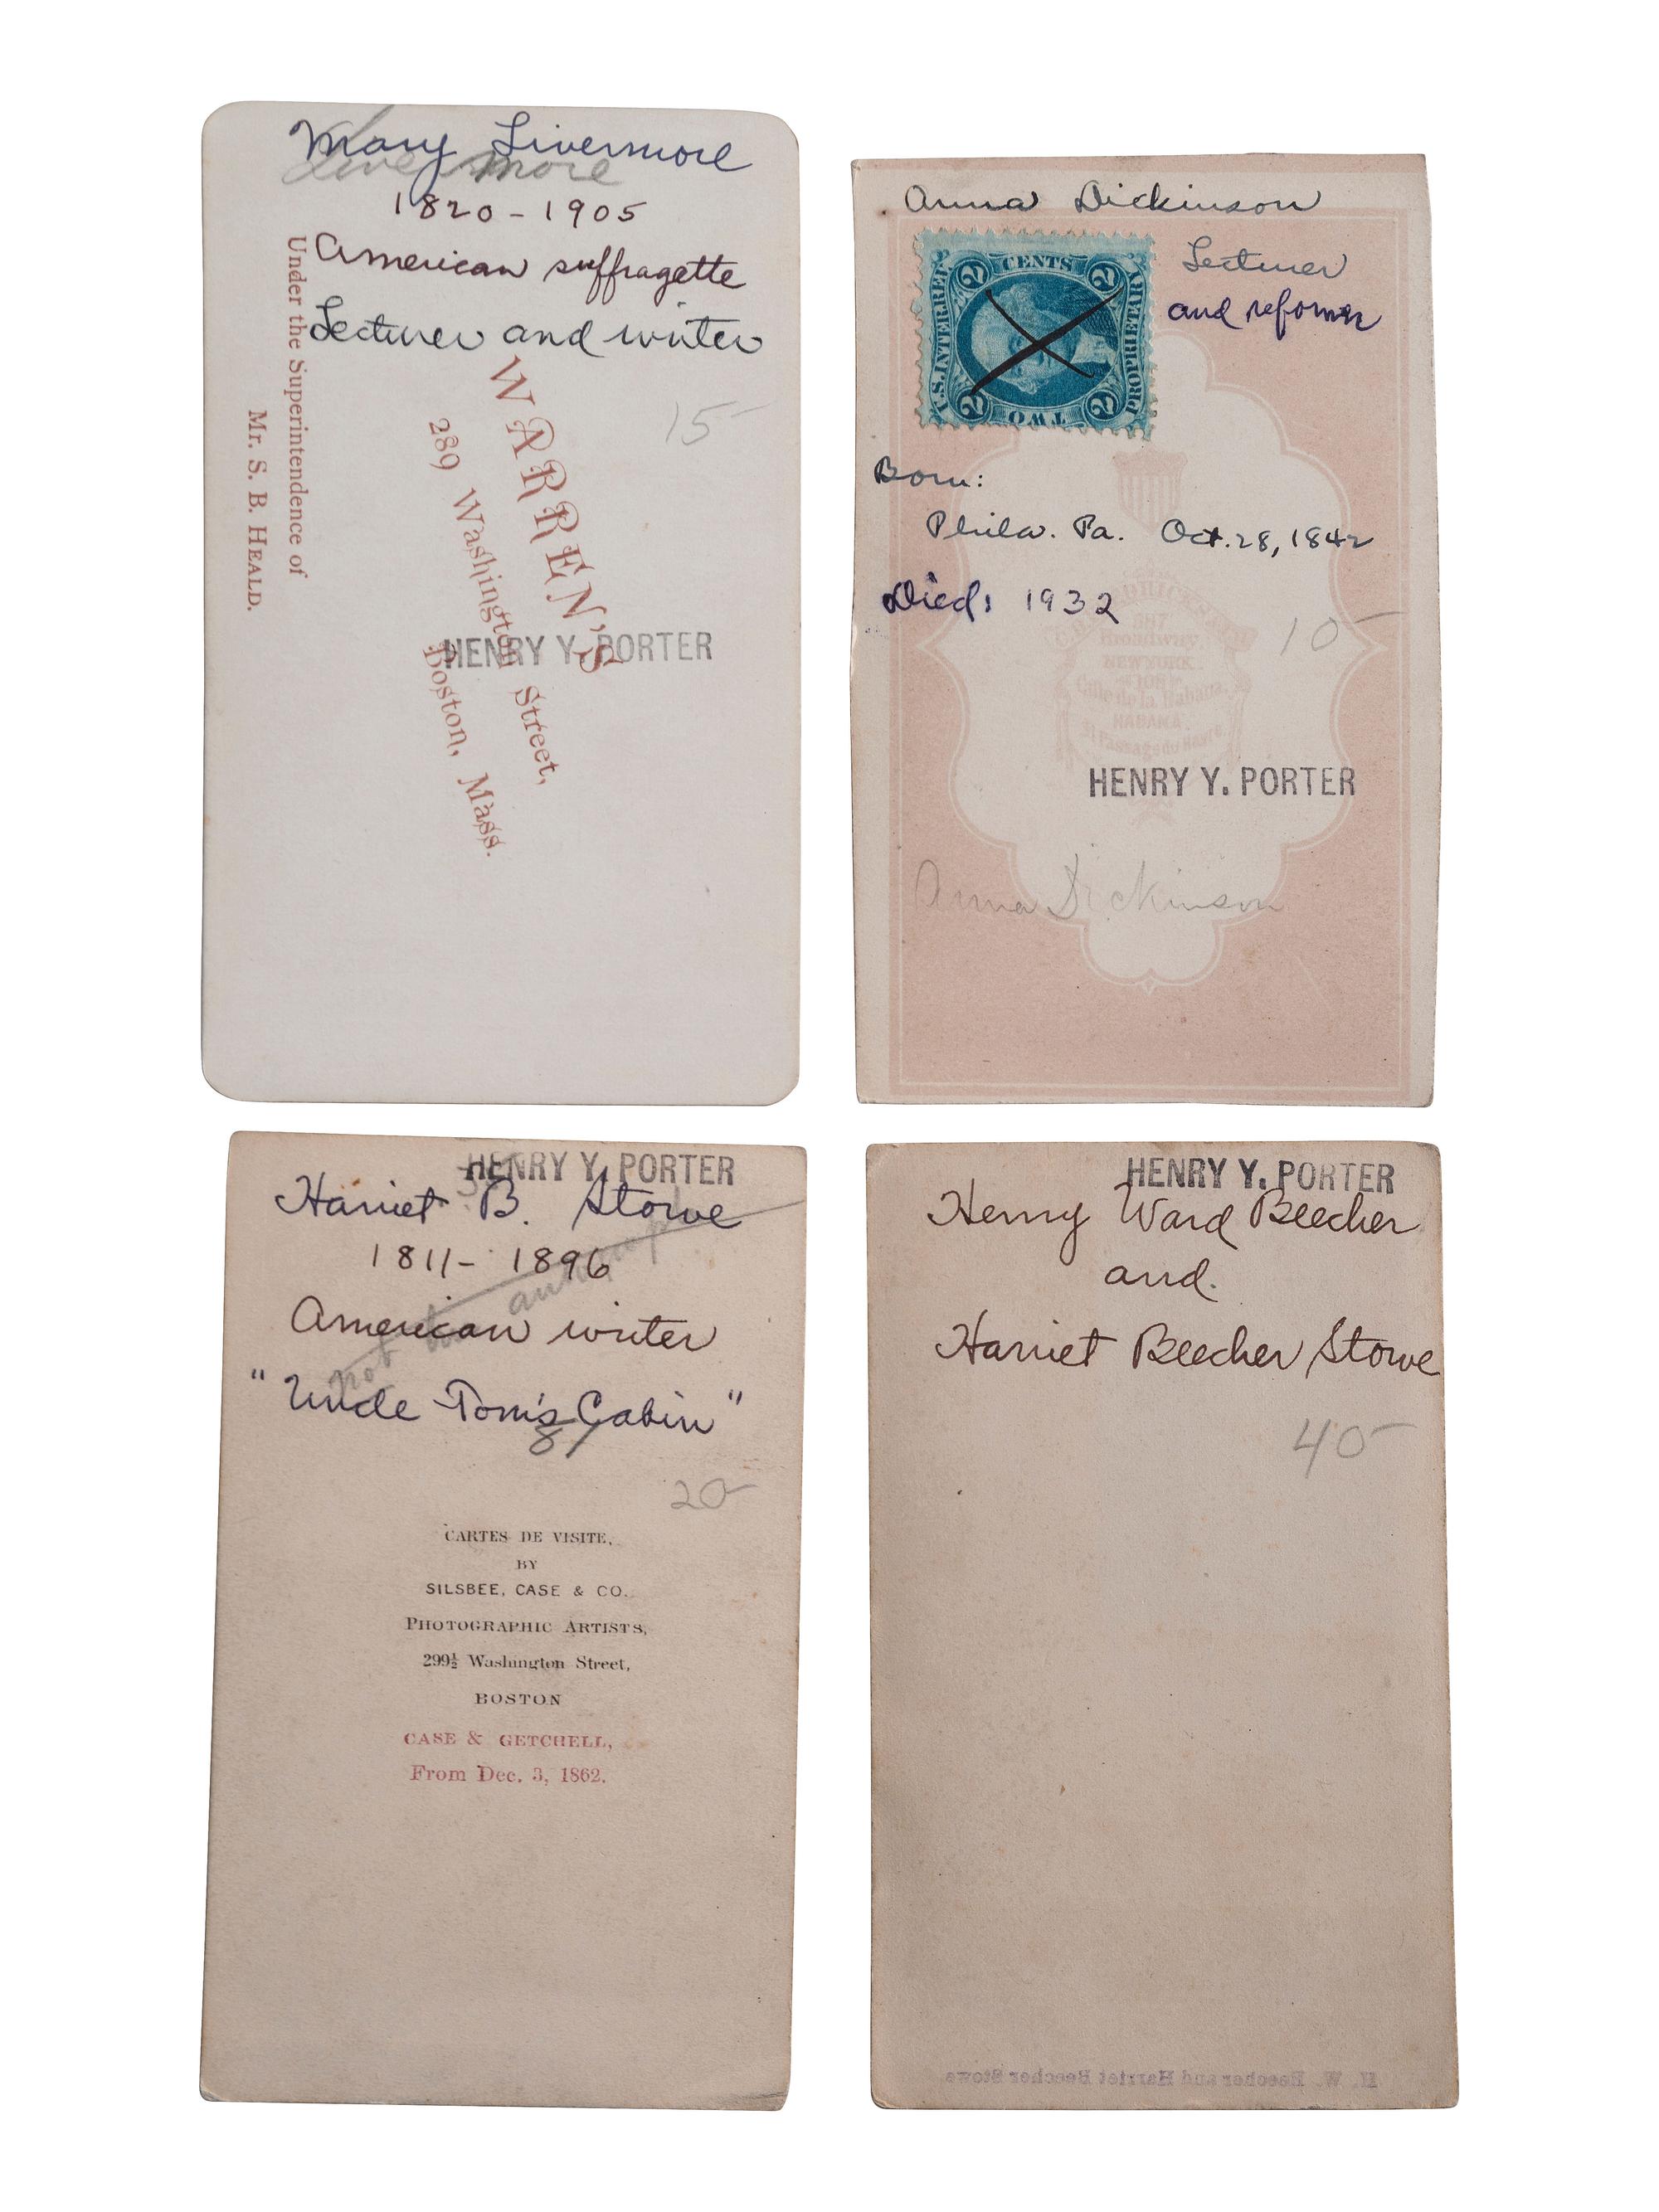 Mary Livermore
Livermore
1820 - 1905
American suffragette
Lecturer and writer
Under the Superintendence of
Mr. S. B. HEALD.
WARREN'S
289 Washington Street,
Boston, Mass.
15-
HENRY Y. PORTER
Anna Dickinson
Lecturer
and reformer
2 CENTS 2
U.S. INTER. REV.
PROPRIETARY
2 TWO 2
Born:
Phila. Pa. Oct. 28, 1842
Died: 1932
587
Broadway
NEW YORK
108
Calle de la Habana,
HABANA
31 Passage du Havre
10-
HENRY Y. PORTER
Anna Dickinson
HENRY Y. PORTER
Harriet B. Stowe
1811 - 1896
not
American writer
"Uncle Tom's Cabin"
20-
CARTES DE VISITE,
BY
SILSBEE, CASE & CO.
PHOTOGRAPHIC ARTISTS,
299½ Washington Street,
BOSTON
CASE & GETCHELL,
From Dec. 3, 1862.
HENRY Y. PORTER
Henry Ward Beecher
and.
Harriet Beecher Stowe
40-
H. W. Beecher and Harriet Beecher Stowe